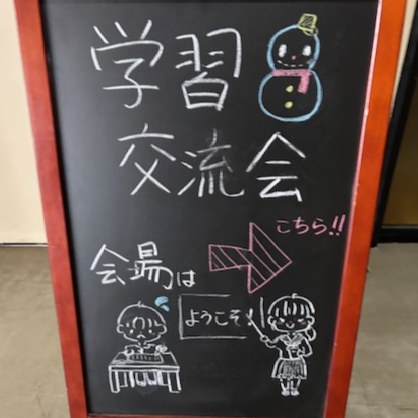 学習
交流会
こちら!!
会場は
ようこそ!